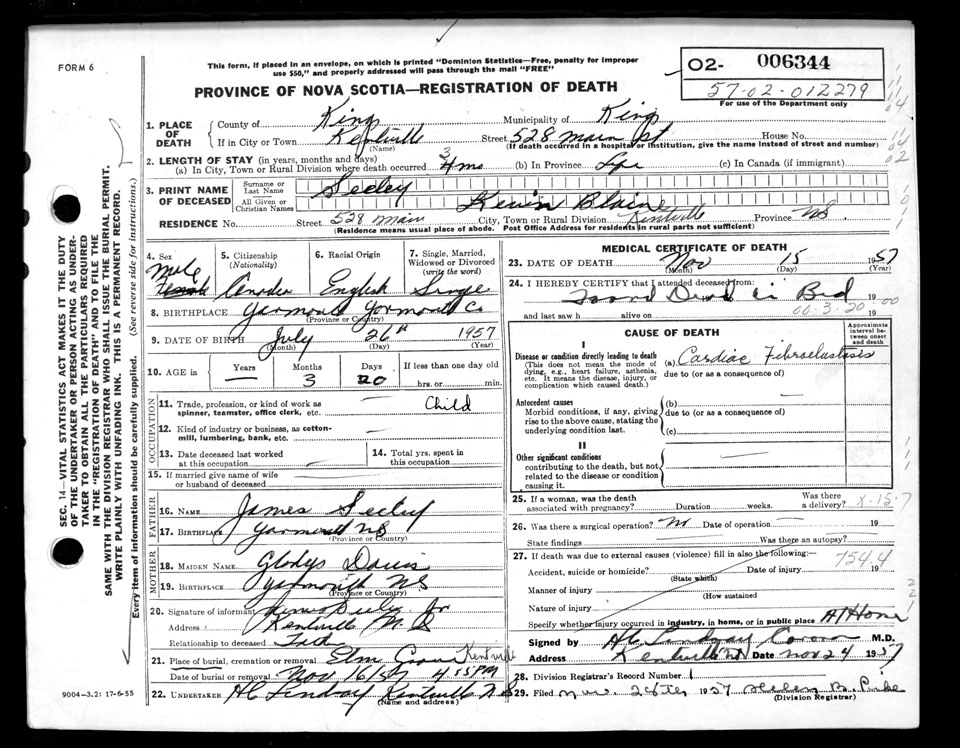 FORM 6
This form, if placed in an envelope, on which is printed "Dominion Statistics—Free, penalty for improper
use $50," and properly addressed will pass through the mail "FREE"
02- 006344
57-02-012279
For use of the Department only
PROVINCE OF NOVA SCOTIA—REGISTRATION OF DEATH
1. PLACE OF DEATH
County of Kings Municipality of Kings
If in City or Town Kentville Street 528 Main St House No.
(Name) (If death occurred in a hospital or institution, give the name instead of street and number)
2. LENGTH OF STAY (in years, months and days)
(a) In City, Town or Rural Division where death occurred 3 mo (b) In Province Life (c) In Canada (if immigrant)
3. PRINT NAME OF DECEASED
Surname or Last Name Seeley
All Given or Christian Names Kevin Blaine
RESIDENCE No. Street 528 Main City, Town or Rural Division Kentville Province N.S.
(Residence means usual place of abode. Post Office Address for residents in rural parts not sufficient)
4. Sex Male Female
5. Citizenship (Nationality) Canada
6. Racial Origin English
7. Single, Married, Widowed or Divorced (write the word) Single
8. BIRTHPLACE Yarmouth Yarmouth Co
(Province or Country)
9. DATE OF BIRTH July 26th 1957
(Month) (Day) (Year)
10. AGE in Years — Months 3 Days 20 If less than one day old
hrs. or min.
OCCUPATION
11. Trade, profession or kind of work as spinner, teamster, office clerk, etc. Child
12. Kind of industry or business, as cotton-mill, lumbering, bank, etc. —
13. Date deceased last worked at this occupation —
14. Total yrs. spent in this occupation
15. If married give name of wife or husband of deceased —
FATHER
16. NAME James Seeley
17. BIRTHPLACE Yarmouth NS
(Province or Country)
MOTHER
18. MAIDEN NAME Gladys Davis
19. BIRTHPLACE Yarmouth NS
(Province or Country)
20. Signature of informant Jr
Address Kentville N S
Relationship to deceased Father
21. Place of burial, cremation or removal Elm Grove Kentville
Date of burial or removal Nov 16/57
22. UNDERTAKER HC Lindsay Kentville N.S.
(Name and address)
MEDICAL CERTIFICATE OF DEATH
23. DATE OF DEATH Nov 15 1957
(Month) (Day) (Year)
24. I HEREBY CERTIFY that I attended deceased from:
Found Dead in Bed 19
00-3-20-00
and last saw h alive on 19
CAUSE OF DEATH
Approximate interval between onset and death
I
Disease or condition directly leading to death
(This does not mean the mode of dying, e.g., heart failure, asthenia, etc. It means the disease, injury, or complication which caused death.)
(a) Cardiac Fibroelastosis
due to (or as a consequence of)
Antecedent causes
Morbid conditions, if any, giving rise to the above cause, stating the underlying condition last.
(b)
due to (or as a consequence of)
(c)
II
Other significant conditions
contributing to the death, but not related to the disease or condition causing it.
25. If a woman, was the death associated with pregnancy? Duration weeks. Was there a delivery?
X-15-7
26. Was there a surgical operation? No Date of operation 19
State findings Was there an autopsy?
27. If death was due to external causes (violence) fill in also the following:
754.4
Accident, suicide or homicide? Date of injury 19
(State which)
Manner of injury
(How sustained
Nature of injury
Specify whether injury occurred in industry, in home, or in public place At Home
Signed by M.D.
Address Kentville NS Date Nov 24 1957
28. Division Registrar's Record Number
29. Filed 26th 1957 Helen B. Pike
(Division Registrar)
SEC. 14—VITAL STATISTICS ACT MAKES IT THE DUTY
OF THE UNDERTAKER OR PERSON ACTING AS UNDER-
TAKER TO OBTAIN ALL THE PARTICULARS REQUIRED
IN THE "REGISTRATION OF DEATH" AND TO FILE THE
SAME WITH THE DIVISION REGISTRAR WHO SHALL ISSUE THE BURIAL PERMIT.
WRITE PLAINLY WITH UNFADING INK. THIS IS A PERMANENT RECORD.
Every item of information should be carefully supplied. (See reverse side for instructions.)
9004-3.2: 17-6-55